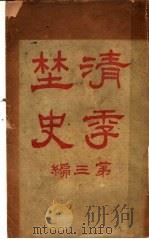 清季
埜史
第三編